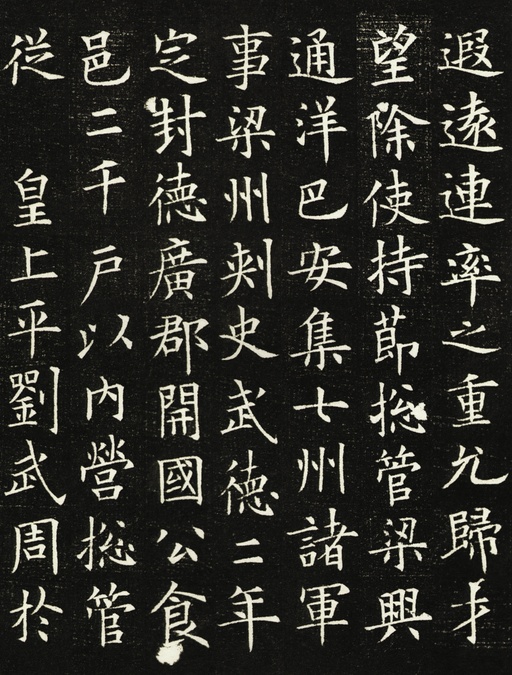 遐遠連率之重允歸才
望除使持節揔管梁興
通洋巴安集七州諸軍
事梁州刺史武德二年
定封德廣郡開國公食
邑二千戶以內營揔管
從 皇上平劉武周於